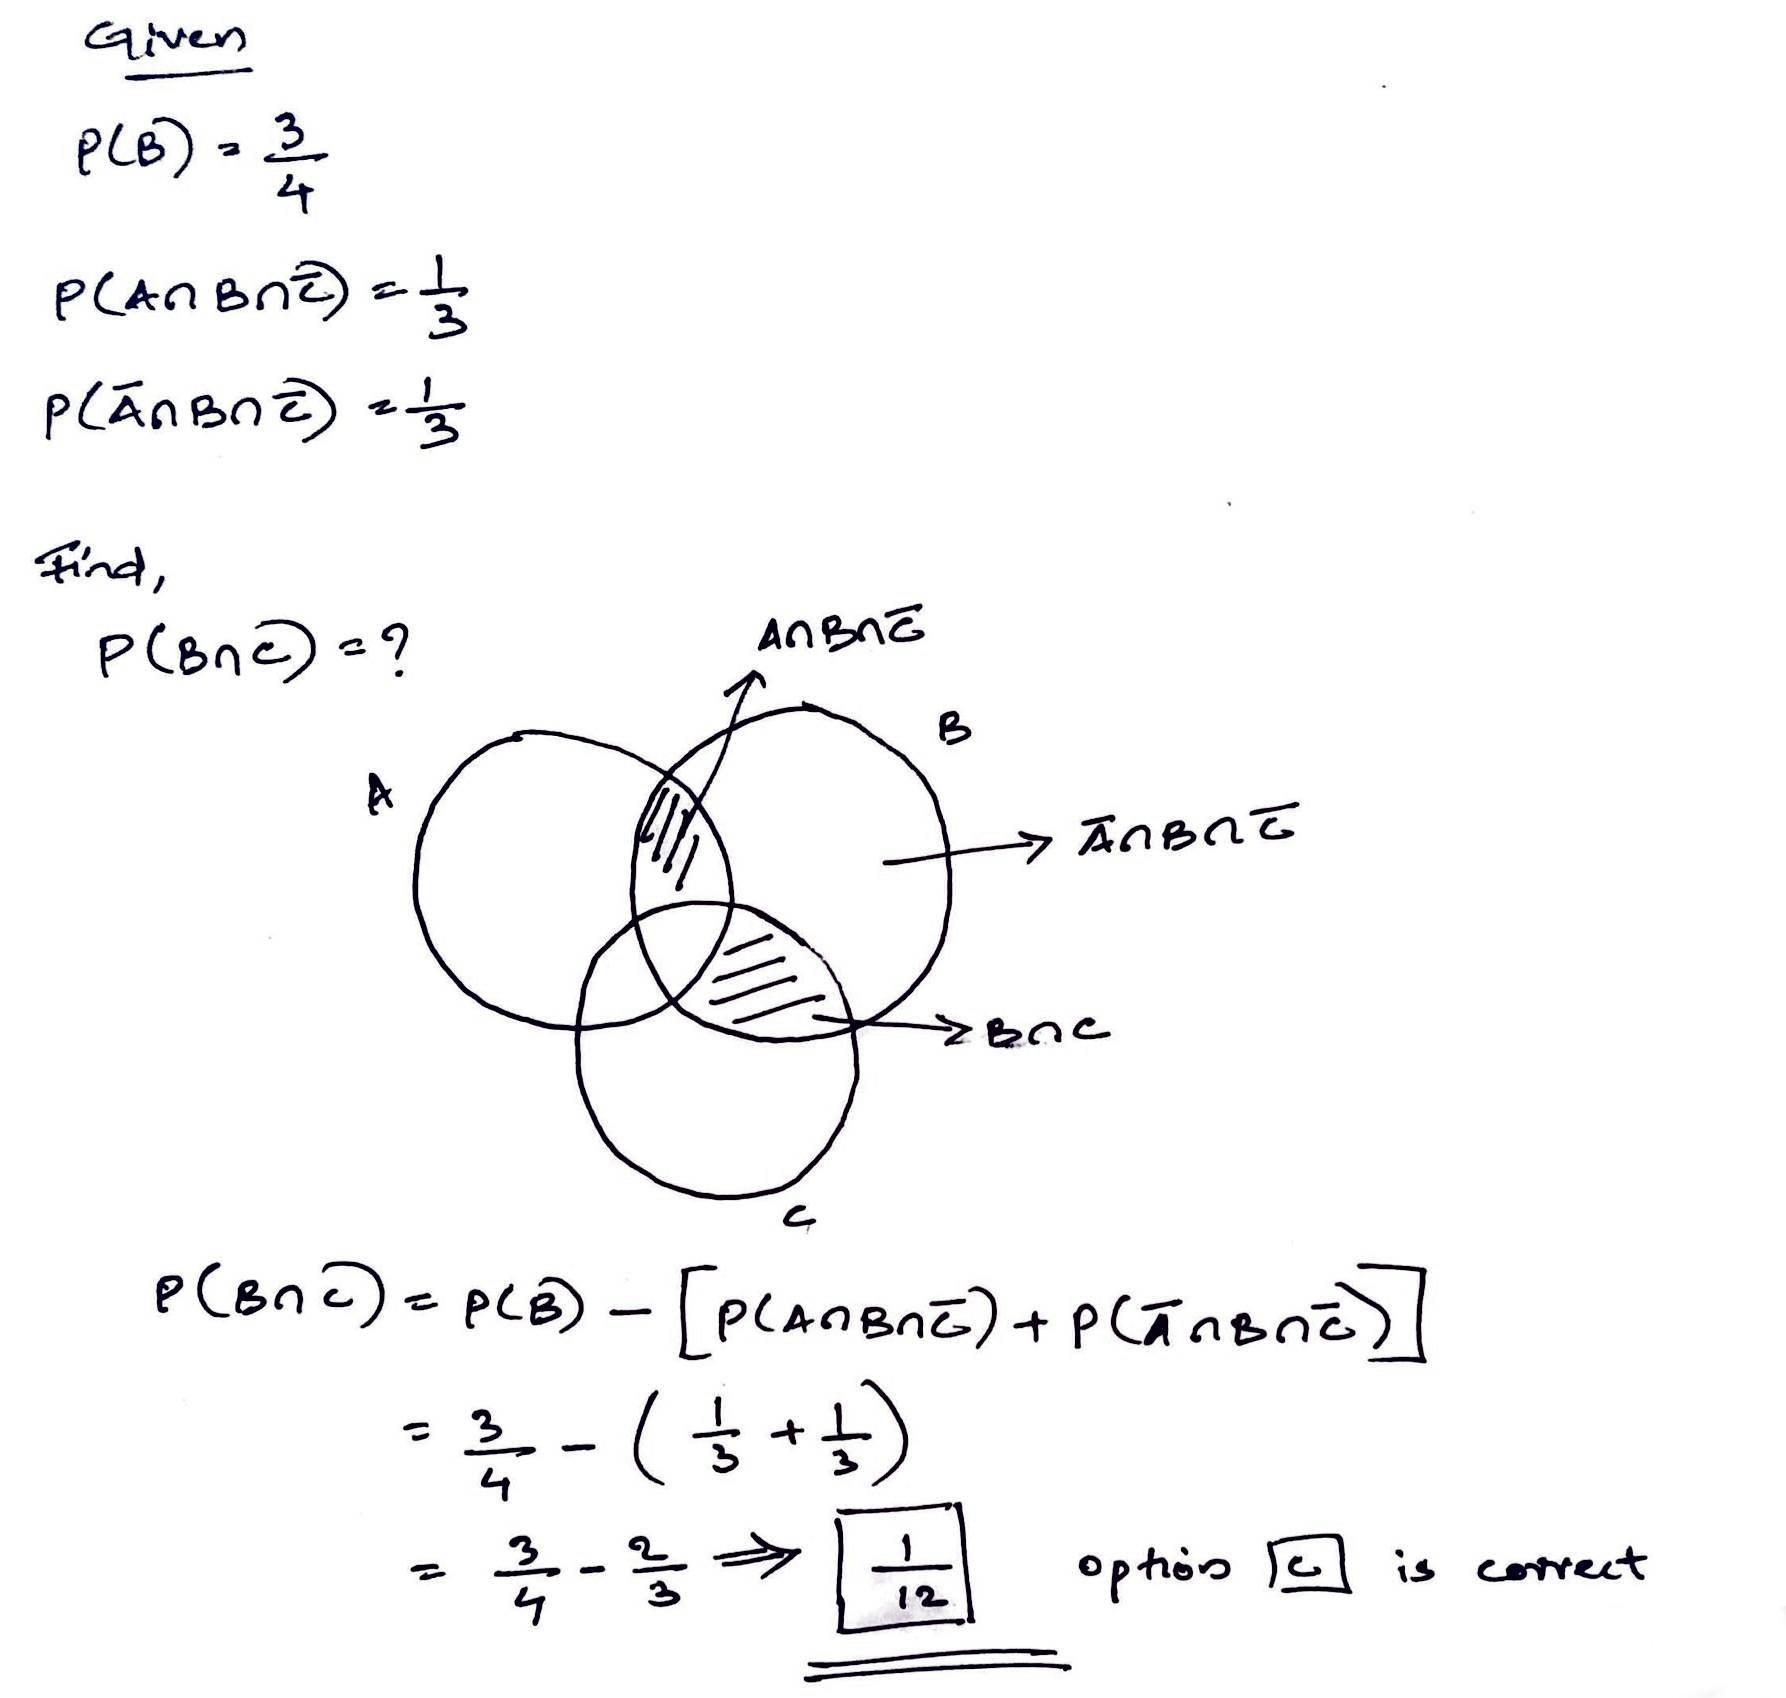 Given
P(B) = 3/4
P(A∩B∩C̅) = 1/3
P(A̅∩B∩C̅) = 1/3
Find,
P(B∩C) = ?
A∩B∩C̅
B
A
A̅∩B∩C̅
B∩C
C
P(B∩C) = P(B) - [P(A∩B∩C̅) + P(A̅∩B∩C̅)]
= 3/4 - (1/3 + 1/3)
= 3/4 - 2/3 ⇒ 1/12 option C is correct